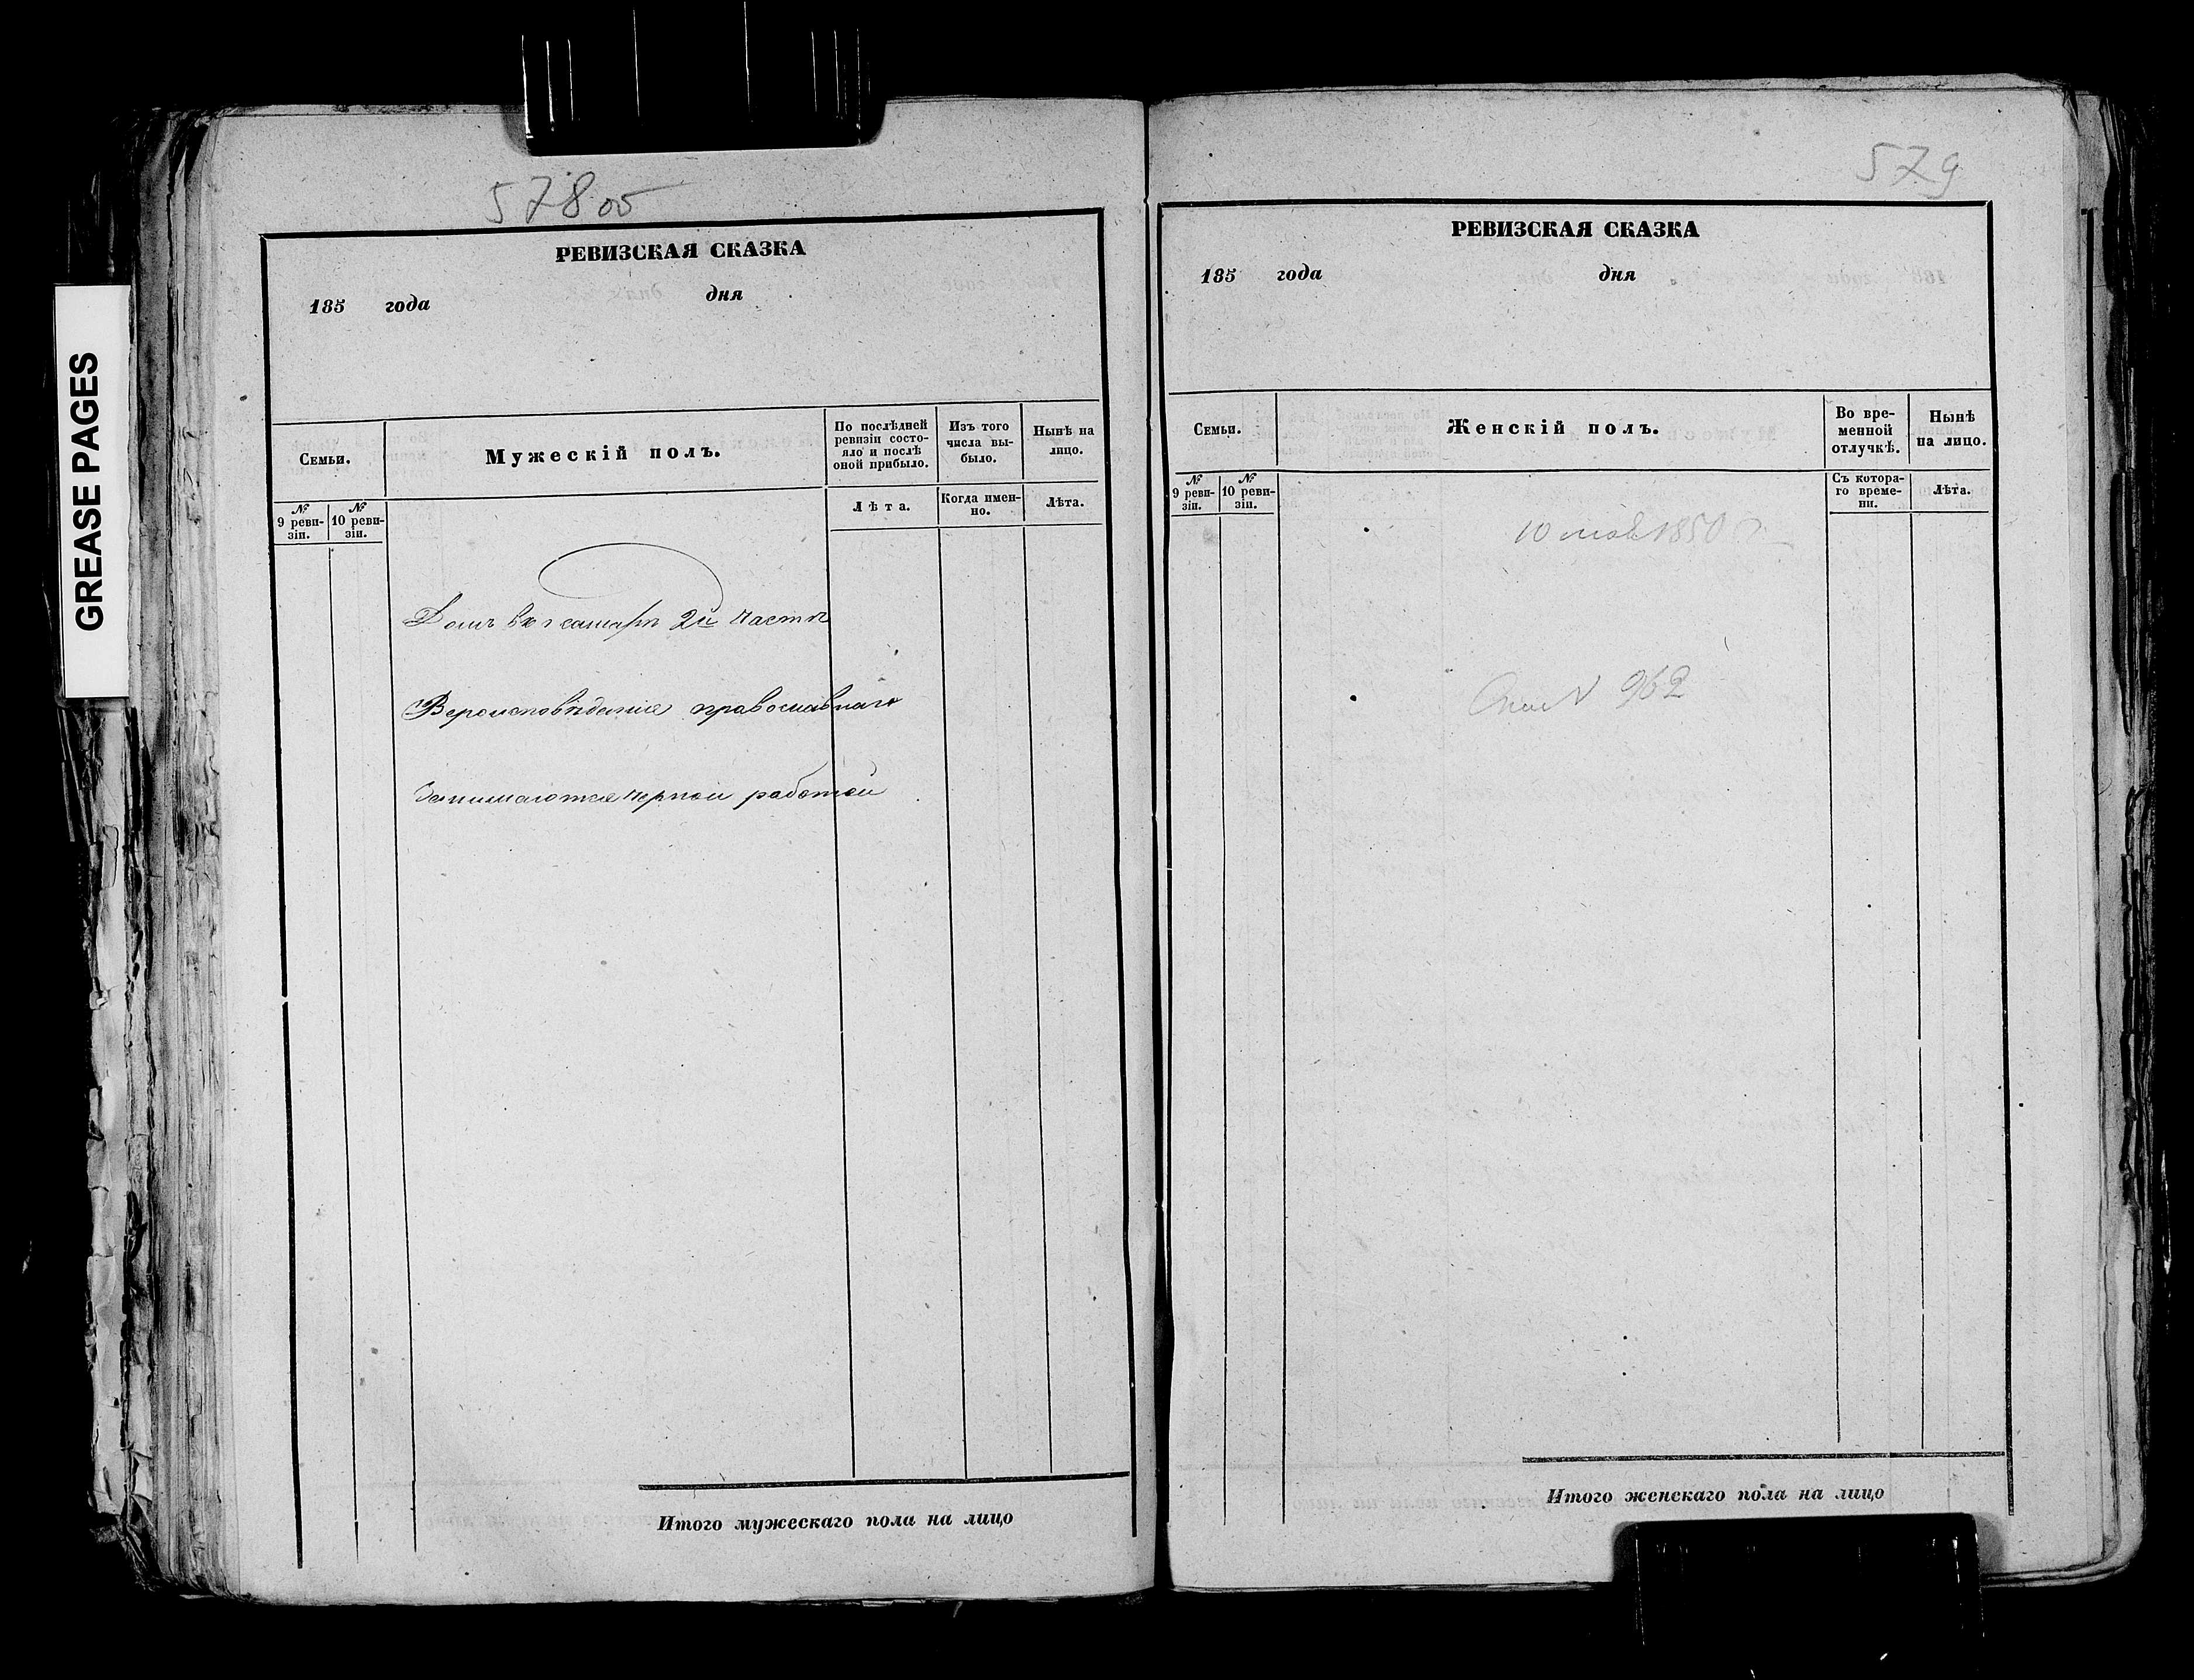 GREASE PAGES
578 об
РЕВИЗСКАЯ СКАЗКА
185 года дня
Семьи.
Мужескій полъ.
По послѣдней ревизіи состо-
яло и послѣ
оной прибыло.
Изъ того
числа вы-
было.
Нынѣ на
лицо.
№
9 реви-
зіи.
№
10 реви-
зіи.
Лѣта.
Когда имен-
но.
Лѣта.
Домъ въ г Самарѣ 2й части
Вероисповѣдания православнаго
Занимаются черной работой
Итого мужескаго пола на лицо
579
РЕВИЗСКАЯ СКАЗКА
185 года дня
Семьи.
Женскій полъ.
Во вре-
менной
отлучкѣ.
Нынѣ
на лицо.
№
9 реви-
зіи.
№
10 реви-
зіи.
Съ котора-
го време-
ни.
Лѣта.
10 1850
N 962
Итого женскаго пола на лицо